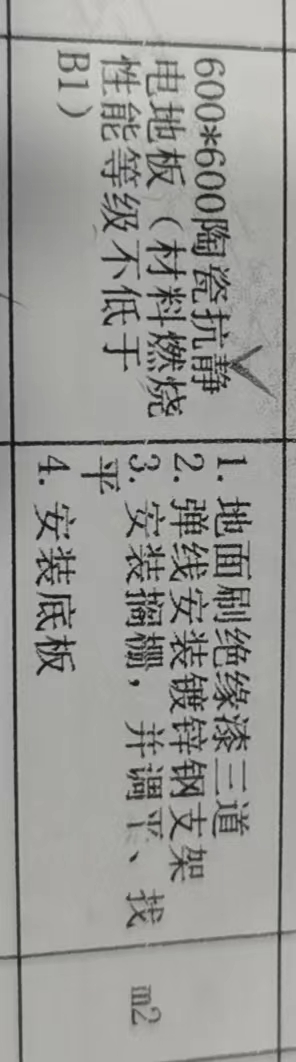 600*600陶瓷抗静
电地板（材料燃烧
性能等级不低于
B1）
1. 地面刷绝缘漆三道
2. 弹线安装镀锌钢支架
3. 安装搁栅，并调平、找
平
4. 安装底板
m2